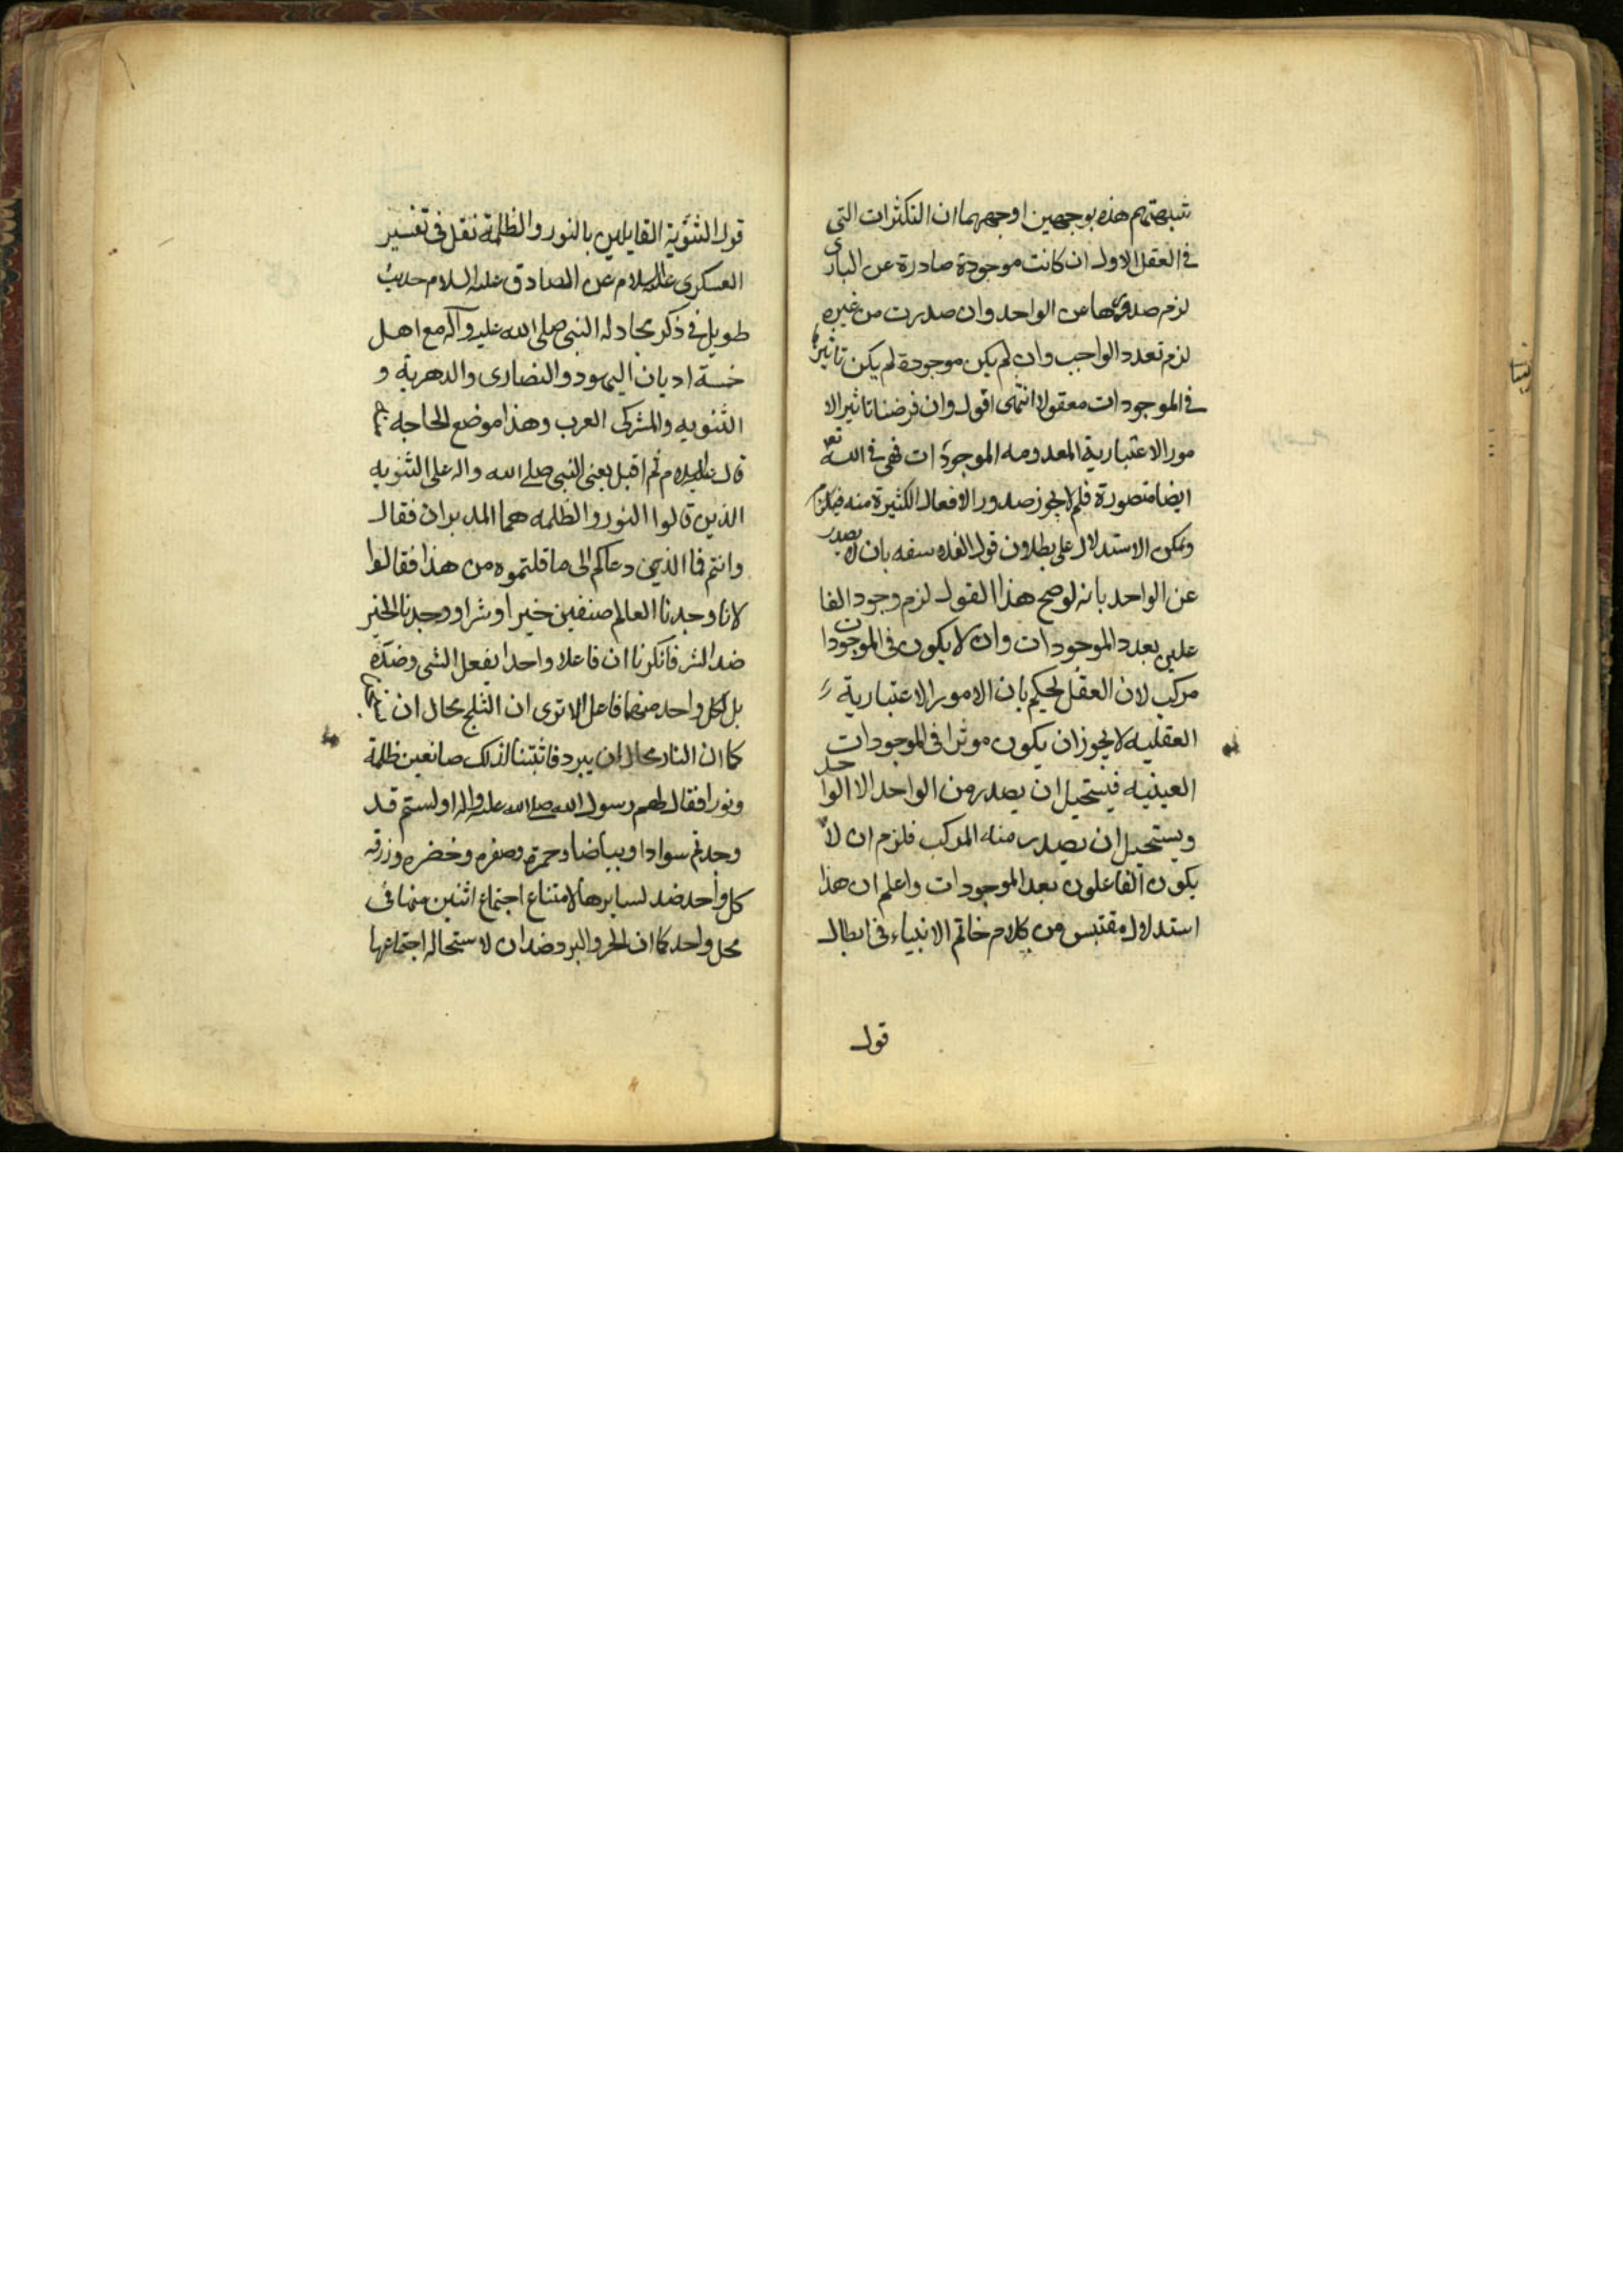 شبهتهم هذه بوجهين اوجههما ان التكثرات التى
فى العقل الاول ان كانت موجودة صادرة عن البارى
لزم صدورها عن الواحد وان صدرت من غيره
لزم تعدد الواجب وان لم يكن موجودة لم يكن تاثيرها
فى الموجودات معقولا انتهى اقول وان فرضنا تاثير الا
مور الاعتبارية المعدومه الموجودات فهى فى الله تعم
ايضا متصورة فلم لا يجوز صدور الافعال الكثيرة منه
ويمكن الاستدلال على بطلان قول الفلاسفه بان لا يصدر
عن الواحد بانه لو صح هذا القول لزم وجود الفا
علين بعدد الموجودات وان لا يكون فى الموجودات
مركب لان العقل يحكم بان الامور الاعتبارية
العقليه لا يجوز ان يكون موثرا فى الموجودات
العينيه فيستحيل ان يصدر من الواحد الا الواحد
ويستحيل ان يصدر منه المركب فلزم ان لا
يكون الفاعلون بعد الموجودات واعلم ان هذا
استدلال مقتبس من كلام خاتم الانبياء فى ابطال
قول
قول الثنوية القايلين بالنور والظلمة نقل فى تفسير
العسكرى عليه السلام عن الصادق عليه السلام حديث
طويل فى ذكر مجادله النبى صلى الله عليه وآله مع اهل
خمسة اديان اليهود والنصارى والدهرية و
الثنويه والمشركى العرب وهذا موضع الحاجه
قال عليه السلام ثم اقبل يعنى النبى صلى الله واله على الثنويه
الذين قالوا النور والظلمه هما المدبران فقال
وانتم فما الذى دعاكم الى ما قلتموه من هذا فقالوا
لانا وجدنا العالم صنفين خيرا وشرا ووجدنا الخير
ضد الشر فانكرنا ان فاعلا واحدا يفعل الشى وضده
بل لكل واحد منهما فاعل الا ترى ان الثلج محال ان
كما ان النار محال ان يبرد فاثبتنا لذلك صانعين ظلمة
ونورا فقال لهم رسول الله صلى الله عليه واله اولستم قد
وجدتم سوادا وبياضا وحمرة وصفره وخضره وزرقه
كل واحد ضد لسايرها لامتناع اجتماع اثنين منها فى
محل واحد كما ان الحر والبرد ضدان لاستحاله اجتماعهما